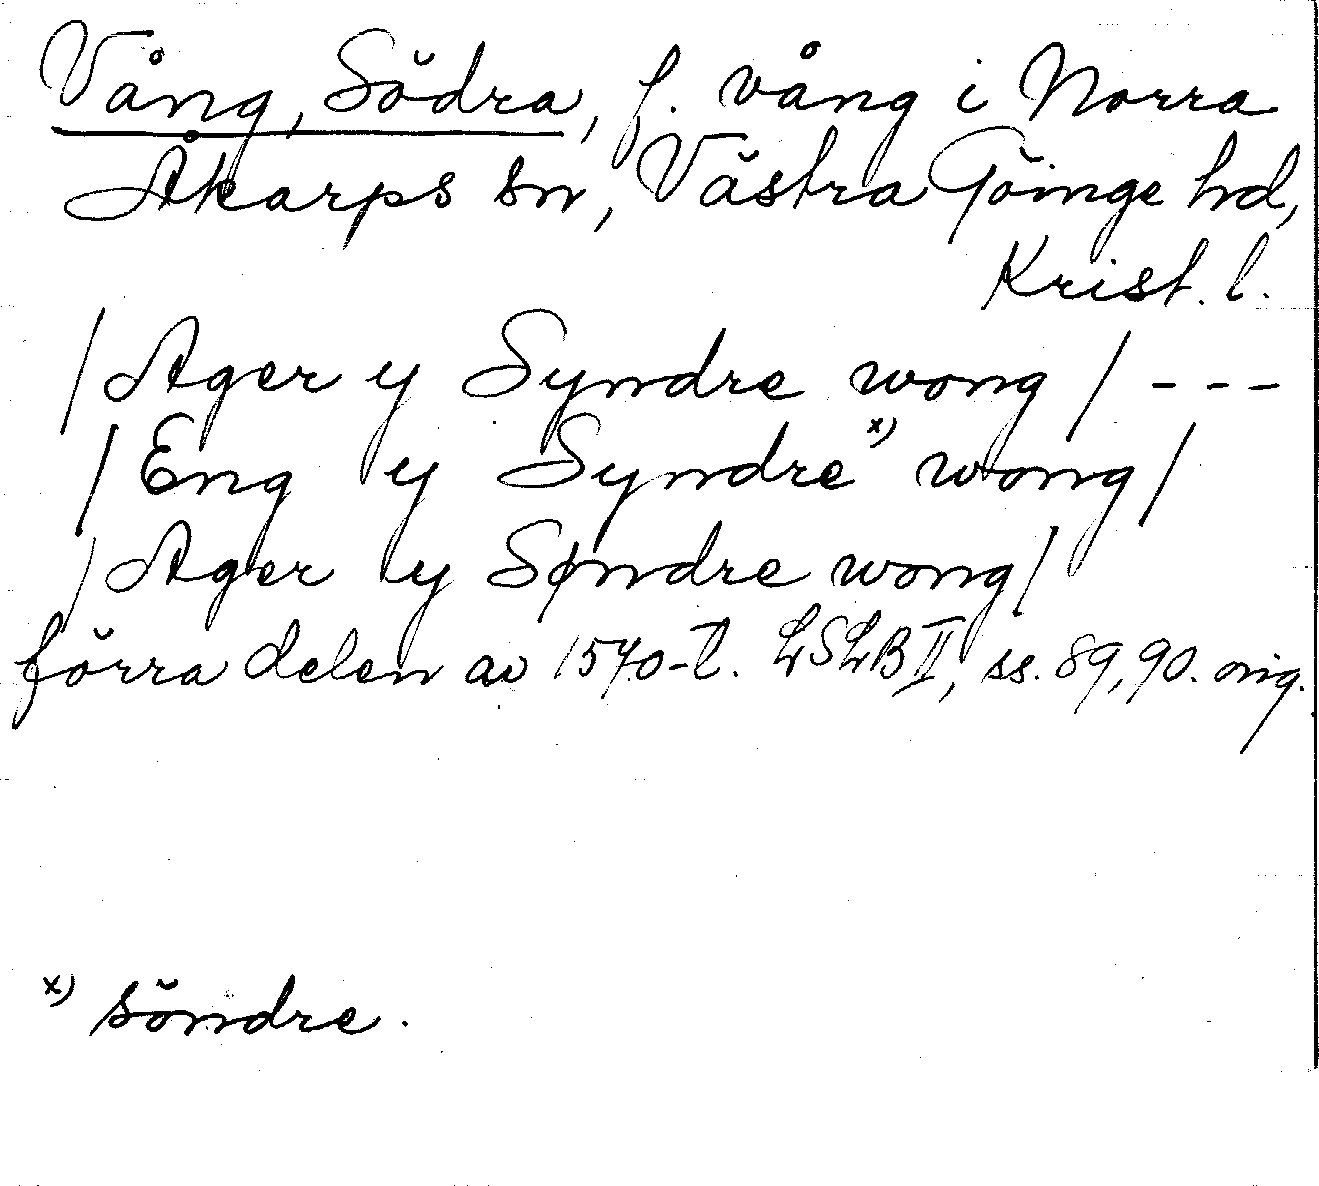 Vång, Södra, f. vång i Norra
Åkarps sn, Västra Göinge hd,
Krist. l.
/ Ager y Syndre wong / ---
/ Eng y Syndre x) wong /
/ Ager y Søndre wong /
förra delen av 1570-t. LSLB II, ss. 89, 90. orig.
x) söndre.